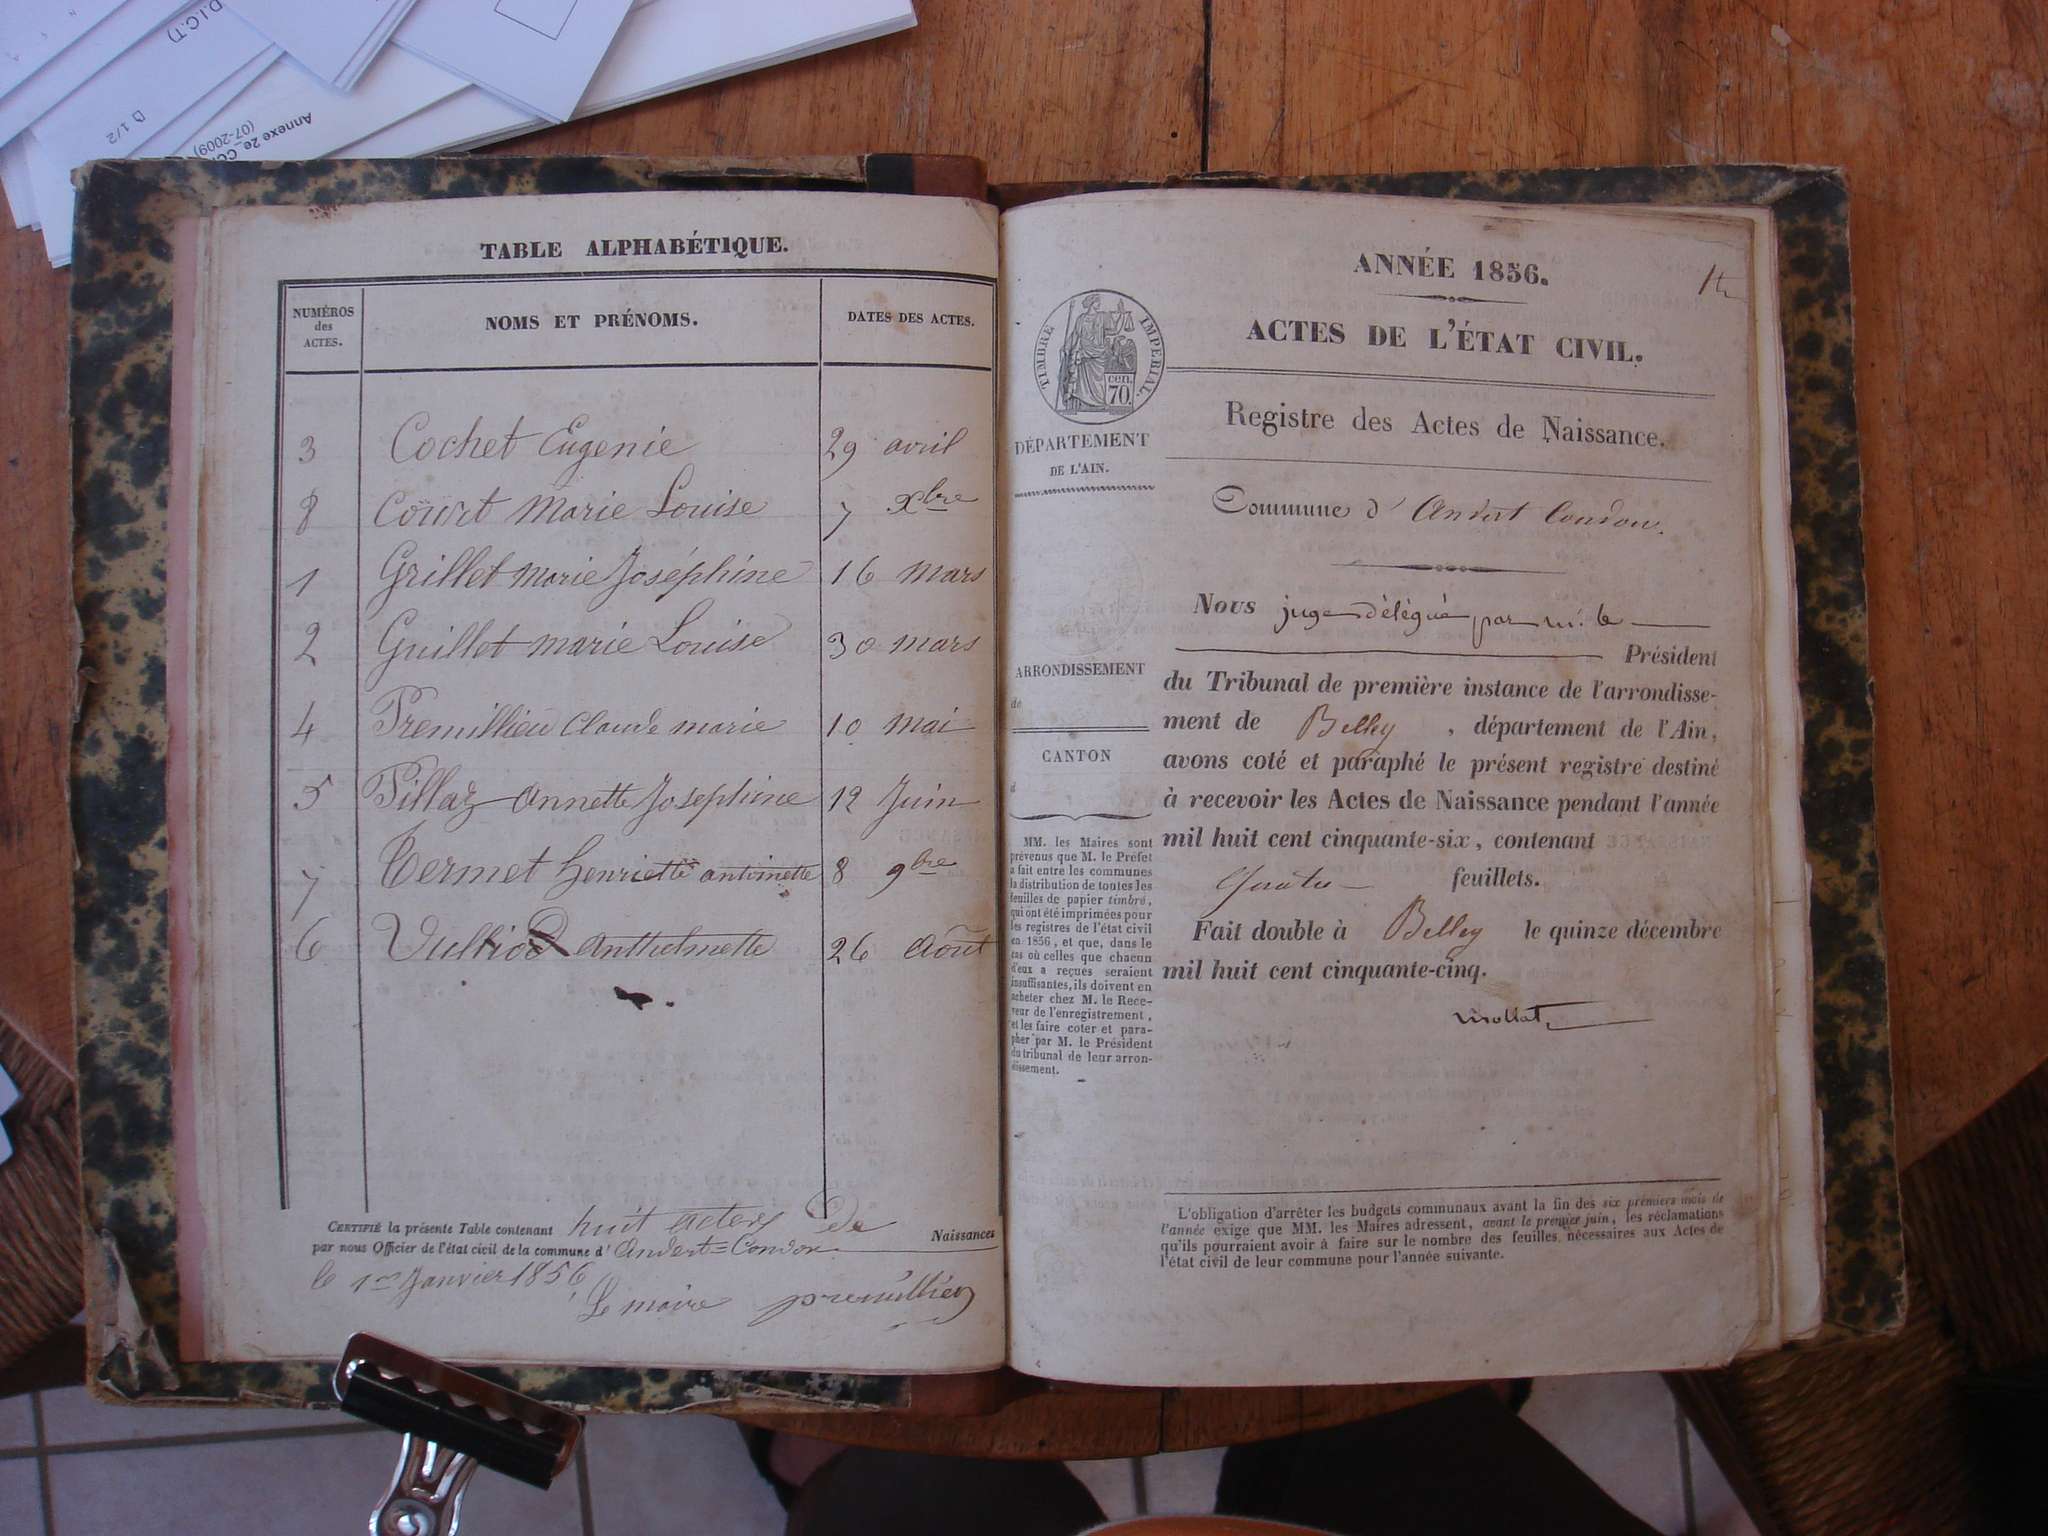 D.I.C.T)
D 1/2
Annexe 2e
(07-2009)
TABLE ALPHABÉTIQUE.
NUMÉROS des ACTES. NOMS ET PRÉNOMS. DATES DES ACTES.
3 Cochet Eugenie 29 avril
8 Court Marie Louise 7 Xbre
1 Grillet Marie Joséphine 16 mars
2 Guillet marie Louise 30 mars
4 Premillieu Claude marie 10 mai
5 Pillaz Annette Josephine 12 Juin
7 Termet henriette antoinette 8 9bre
6 Vulliod Anthelmette 26 Août
CERTIFIÉ la présente Table contenant huit actes de Naissances
par nous Officier de l'état civil de la commune d' Andert=Condon
le 1er Janvier 1856
Le maire premillieu
1er
ANNÉE 1856.
ACTES DE L'ÉTAT CIVIL.
TIMBRE IMPERIAL.
cen.
70.
Registre des Actes de Naissance.
DÉPARTEMENT
DE L'AIN.
Commune d' Andert Condon.
ARRONDISSEMENT
de
CANTON
d
MM. les Maires sont
prévenus que M. le Préfet
a fait entre les communes
la distribution de toutes les
feuilles de papier timbré,
qui ont été imprimées pour
les registres de l'état civil
en 1856, et que, dans le
cas où celles que chacun
d'eux a reçues seraient
insuffisantes, ils doivent en
acheter chez M. le Rece-
veur de l'enregistrement,
et les faire coter et para-
pher par M. le Président
du tribunal de leur arron-
dissement.
Nous juge délégué par m. le
Président
du Tribunal de première instance de l'arrondisse-
ment de Belley, département de l'Ain,
avons coté et paraphé le présent registre destiné
à recevoir les Actes de Naissance pendant l'année
mil huit cent cinquante-six, contenant
feuillets.
Fait double à Belley le quinze décembre
mil huit cent cinquante-cinq.
mollat
L'obligation d'arrêter les budgets communaux avant la fin des six premiers mois de
l'année exige que MM. les Maires adressent, avant le premier juin, les réclamations
qu'ils pourraient avoir à faire sur le nombre des feuilles nécessaires aux Actes de
l'état civil de leur commune pour l'année suivante.